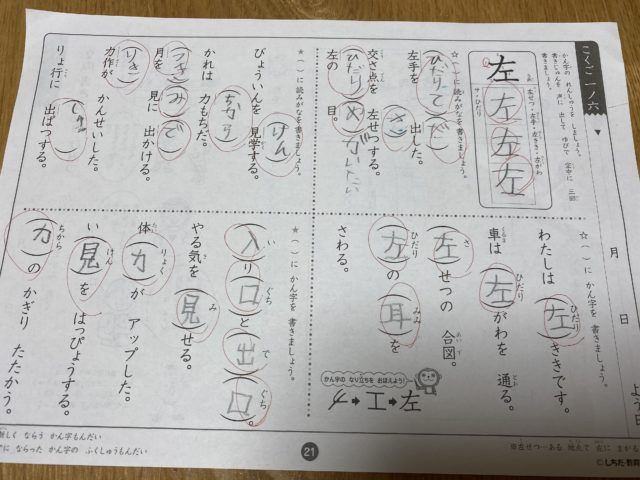 こくご 一ノ六
月 日 よう日
かん字の れんしゅうを しましょう。
書きじゅんを 声に 出して ゆびで 空中に 三回
書きましょう。
左
左
左
左
サ・ひだり
左せつ・左手・左きき・左がわ
☆( )に 読みがなを書きましょう。
左手を(ひだりて) 出した。(だ)
交さ点を 左せつする。(さ)
左の(ひだり) 目。(め)
☆( )に 読みがなを 書きましょう。
びょういんを 見学する。(けん)
かれは 力もちだ。(ちから)
月を(つき) 見に(み) 出かける。(で)
力作が(りき) かんせいした。
りょ行に 出ぱつする。(しゅっ)
☆( )に かん字を 書きましょう。
わたしは(左)ききです。
車は(左)がわを 通る。
(左)せつの 合図。
(左)の(耳)を
さわる。
かん字の なり立ちを おぼえよう!
左
☆( )に かん字を 書きましょう。
(入)り(口)と(出)(口)。
やる気を(見)せる。
体(力)が アップした。
い(見)を はっぴょうする。
(力)の かぎり たたかう。
しく ならう かん字もんだい
に ならった かん字の ふくしゅうもんだい
21
※左せつ…ある 地点で 左に まがる
©しちだ・教育